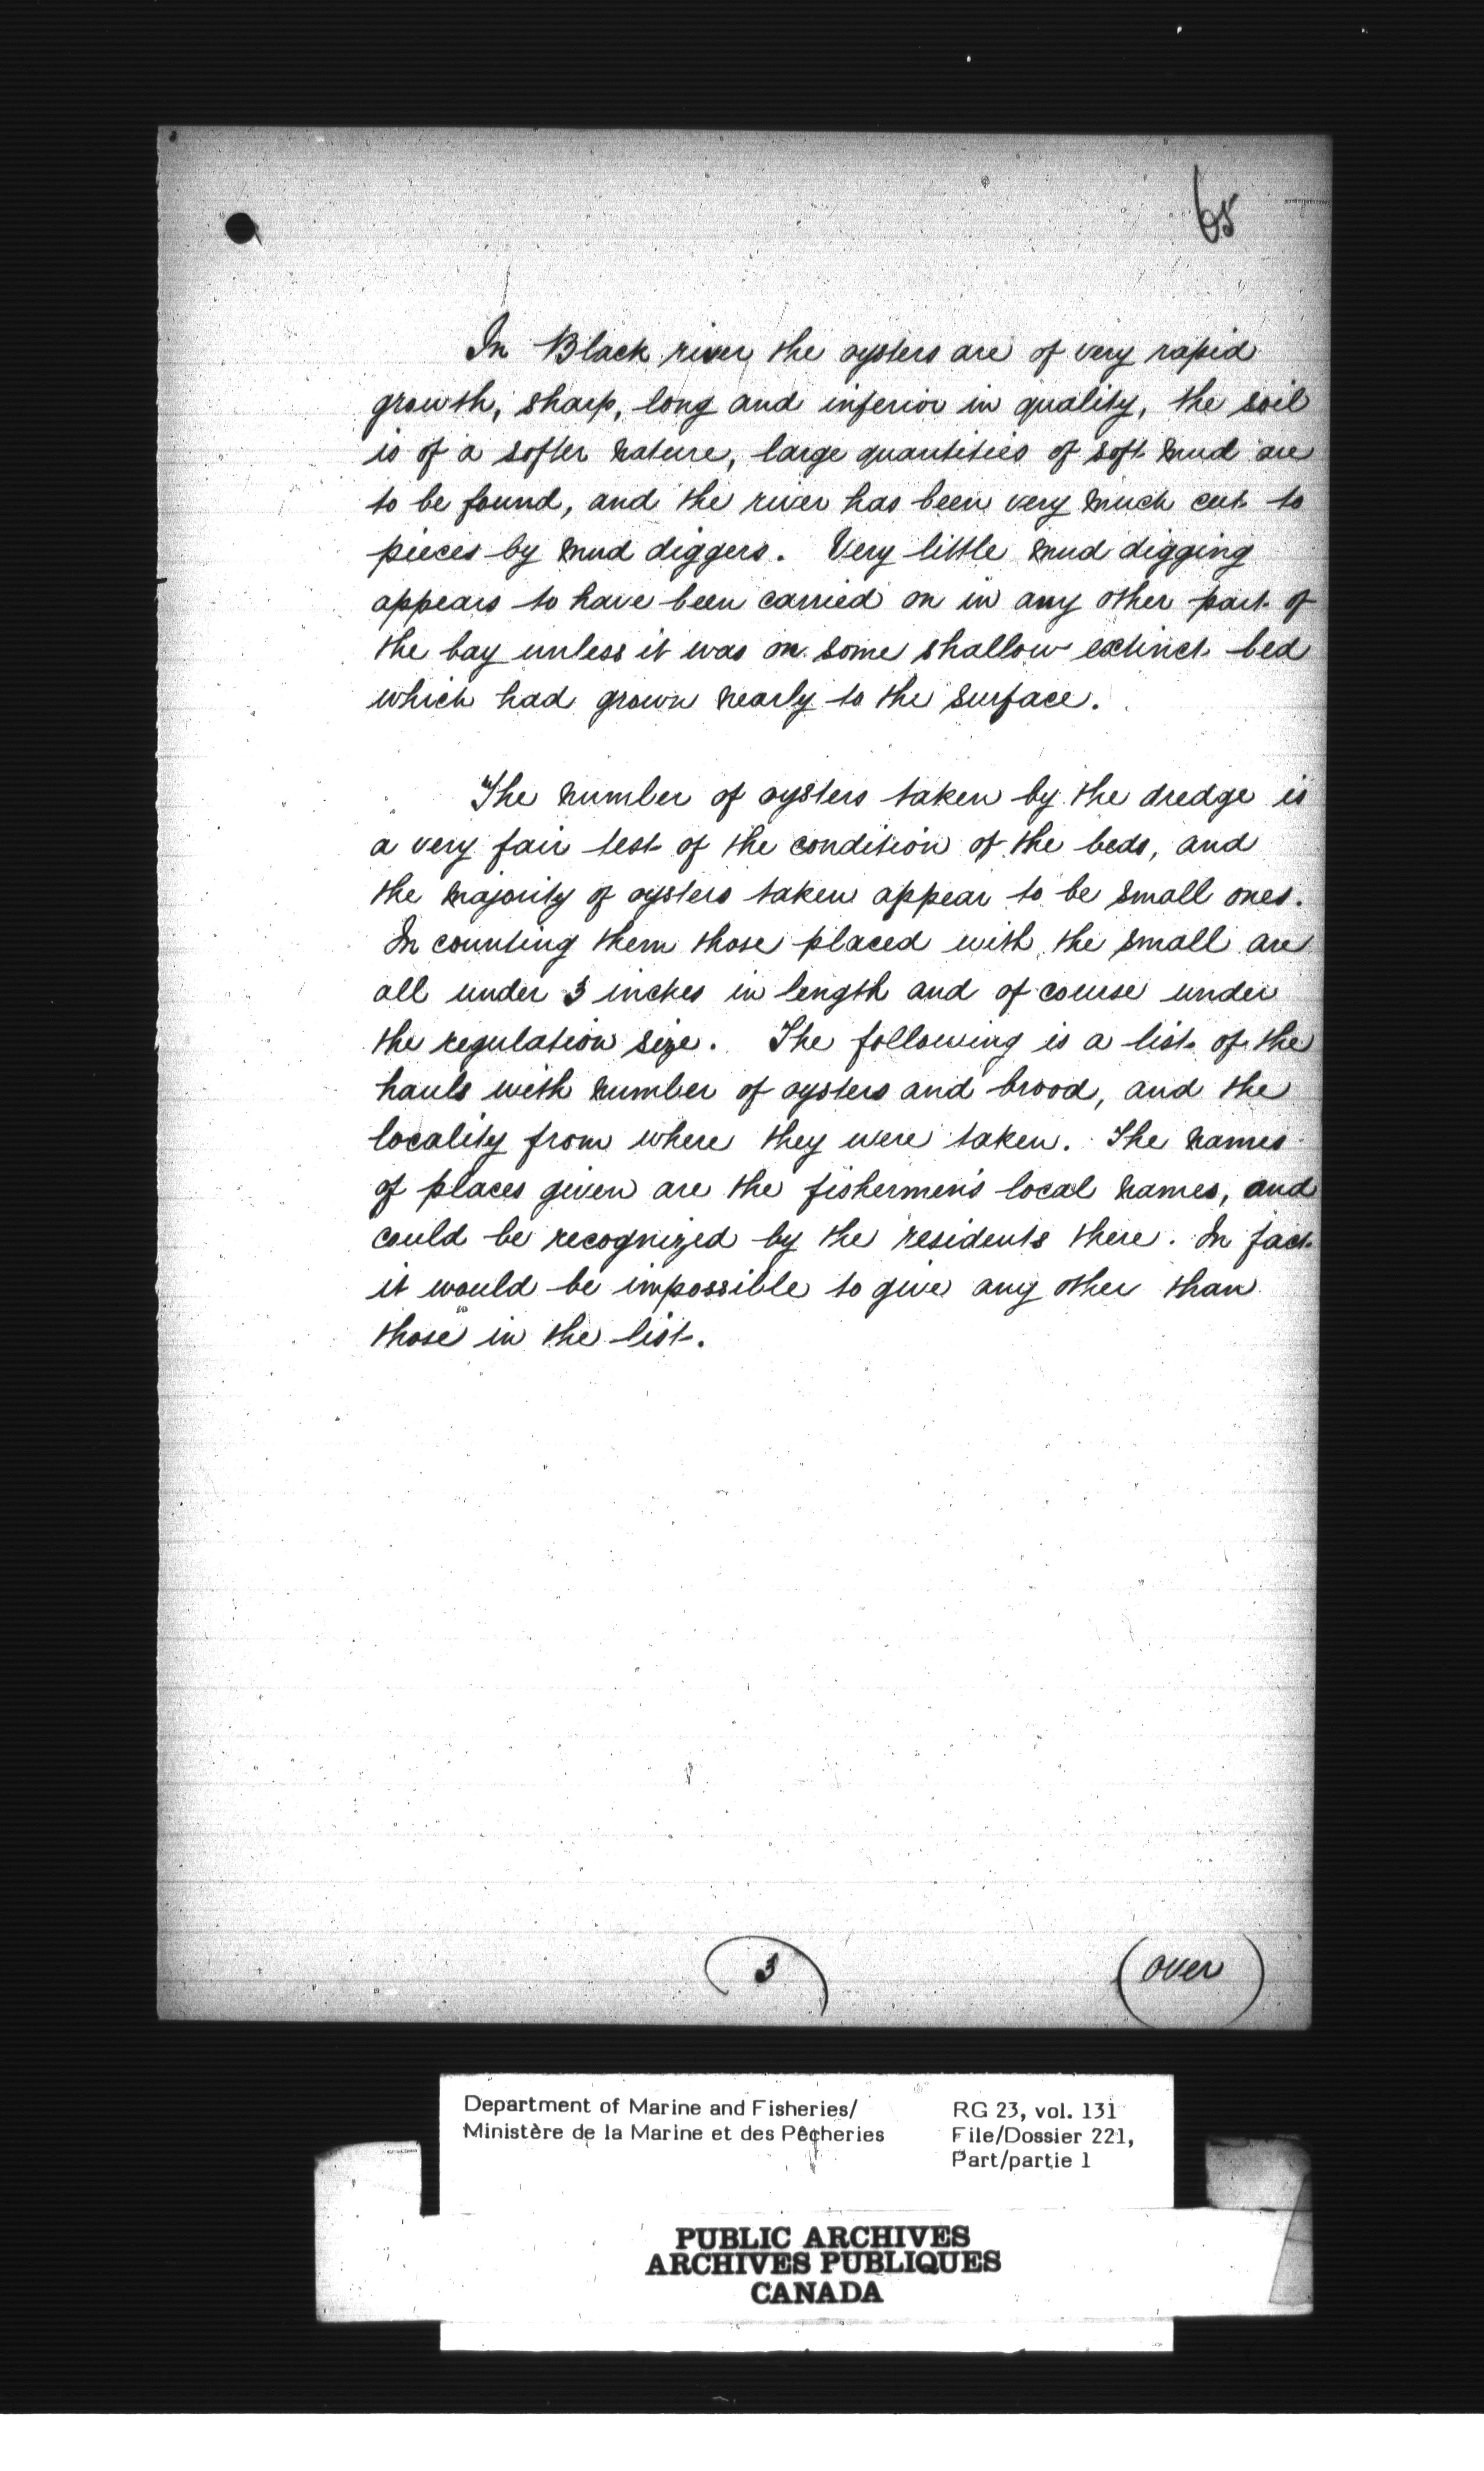 65
In Black river the oysters are of very rapid
growth, sharp, long and inferior in quality, the soil
is of a softer nature, large quantities of soft mud are
to be found, and the river has been very much cut to
pieces by mud diggers. Very little mud digging
appears to have been carried on in any other part of
the bay unless it was on some shallow extinct bed
which had grown nearly to the surface.
The number of oysters taken by the dredge is
a very fair test of the condition of the beds, and
the majority of oysters taken appear to be small ones.
In counting them those placed with the small are
all under 3 inches in length and of course under
the regulation size. The following is a list of the
hauls with number of oysters and brood, and the
locality from where they were taken. The names
of places given are the fishermen's local names, and
could be recognized by the residents there. In fact
it would be impossible to give any other than
those in the list.
3
(over)
Department of Marine and Fisheries/
Ministère de la Marine et des Pêcheries
RG 23, vol. 131
File/Dossier 221,
Part/partie 1
PUBLIC ARCHIVES
ARCHIVES PUBLIQUES
CANADA